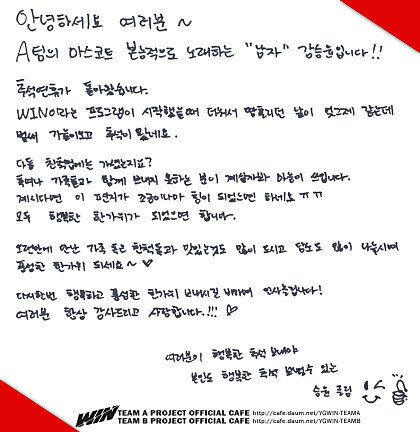 안녕하세요 여러분 ~
A팀의 마스코트 본능적으로 노래하는 "남자" 강승윤입니다!!
추석연휴가 돌아왔습니다.
WIN이라는 프로그램이 시작했을때 더워서 땀흘리던 날이 엊그제 같은데
벌써 가을이오고 추석이 왔네요.
다들 친척집에는 가셨는지요?
혹여나 가족들과 함께 보내지 못하는 분이 계실까봐 마음이 쓰입니다.
계시다면 이 편지가 조금이나마 힘이 되었으면 하네요 ㅠㅠ
모두 행복한 한가위가 되었으면 합니다.
오랜만에 만난 가족 혹은 친척들과 맛있는것도 많이 드시고 담소도 많이 나눔시며
풍성한 한가위 되세요~♡
다시한번 행복하고 풍성한 한가위 보내시길 바라며 인사드립니다!
여러분 항상 감사드리고 사랑합니다.!!! ♡
여러분이 행복한 추석 보내야
본인도 행복한 추석 보낼수 있는
승윤 드림
WIN TEAM A PROJECT OFFICIAL CAFE http://cafe.daum.net/YGWIN-TEAMA
TEAM B PROJECT OFFICIAL CAFE http://cafe.daum.net/YGWIN-TEAMB